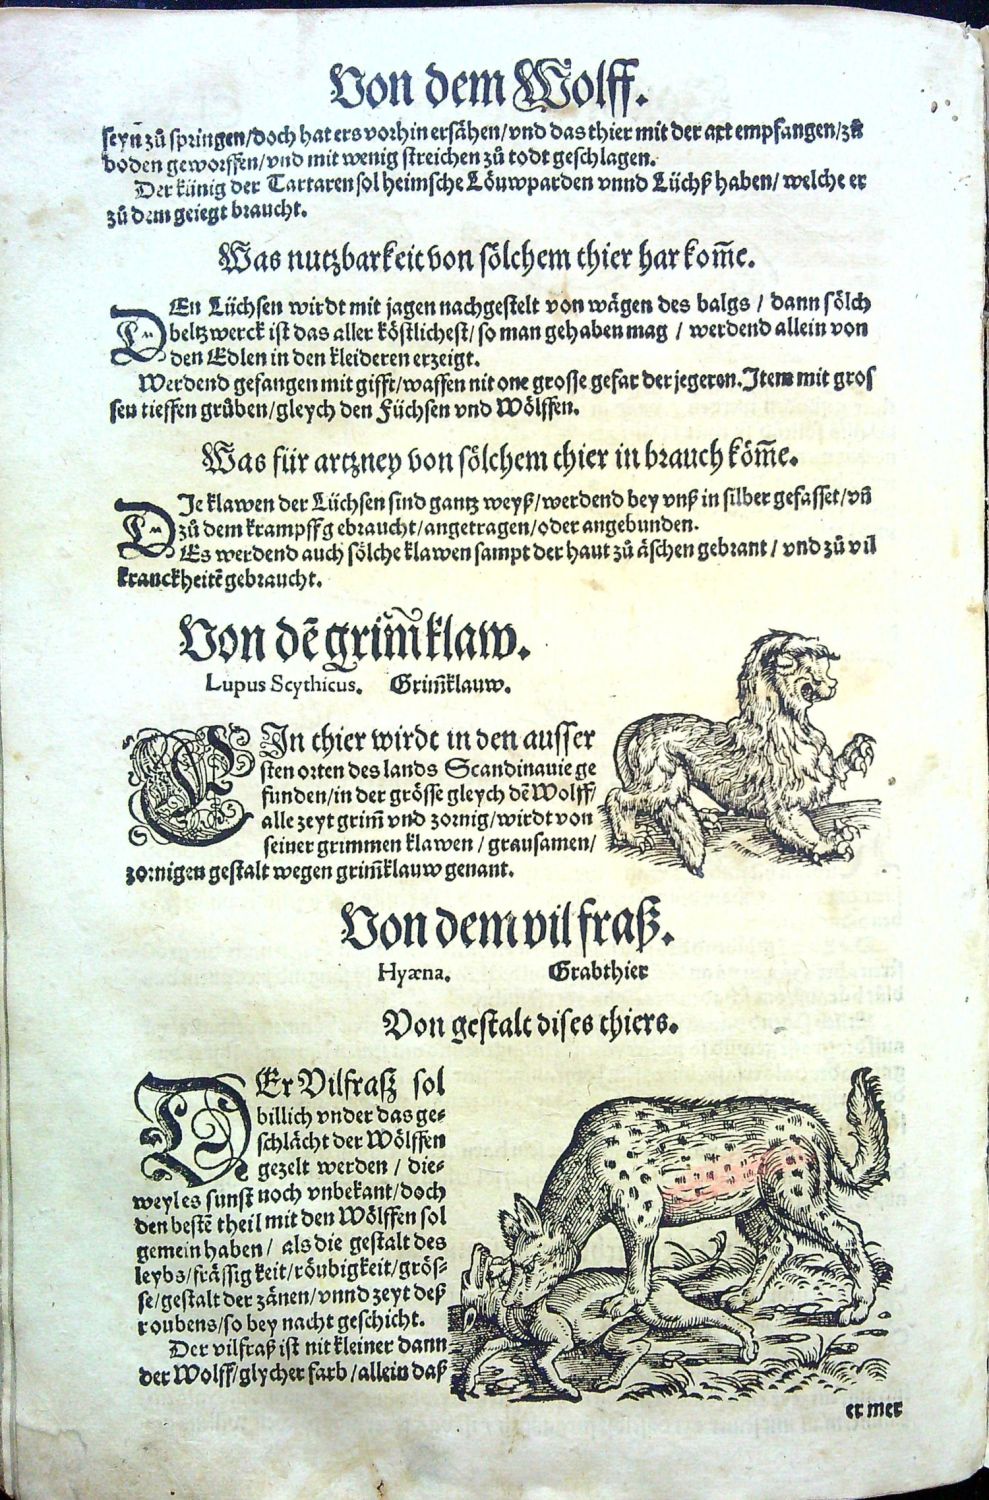 Von dem Wolff.
seyn̄ zů springen/doch hat ers vorhin ersähen/vnd das thier mit der art empfangen/zů
boden geworffen/vnd mit wenig streichen zů todt geschlagen.
Der künig der Tartaren sol heimsche Löuwparden vnnd Lüchß haben/ welche er
zů dem geiegt braucht.
Was nutzbarkeit von sölchem thier har kom̄e.
DEn Lüchsen wirdt mit jagen nachgestelt von wägen des balgs / dann sölch
beltzwerck ist das aller köstlichest/so man gehaben mag / werdend allein von
den Edlen in den kleideren erzeigt.
Werdend gefangen mit gifft/waffen nit one grosse gefar der jegeren. Item mit gros
sen tieffen grůben/gleych den Füchsen vnd Wölffen.
Was für artzney von sölchem thier in brauch köm̄e.
DJe klawen der Lüchsen sind gantz weyß/werdend bey vnß in silber gefasset/vn̄
zů dem krampffg ebraucht/angetragen/oder angebunden.
Es werdend auch sölche klawen sampt der haut zů äschen gebrant / vnd zů vil
kranckheitē gebraucht.
Von dē grim̄klaw.
Lupus Scythicus. Grim̄klauw.
EJn thier wirdt in den ausser
sten orten des lands Scandinauie ge
funden/in der grösse gleych dē Wolff/
alle zeyt grim̄ vnd zornig/wirdt von
seiner grimmen klawen / grausamen/
zornigen gestalt wegen grim̄klauw genant.
Von dem vilfraß.
Hyæna. Grabthier
Von gestalt dises thiers.
DEr Vilfraß sol
billich vnder das ge-
schlächt der Wölffen
gezelt werden / die-
weyl es sunst noch vnbekant/doch
den bestē theil mit den Wölffen sol
gemein haben/ als die gestalt des
leybs/frässigkeit/röubigkeit/grös-
se/gestalt der zänen/vnnd zeyt deß
roubens/so bey nacht geschicht.
Der vilfraß ist nit kleiner dann
der Wolff/glycher farb/allein daß
er mer